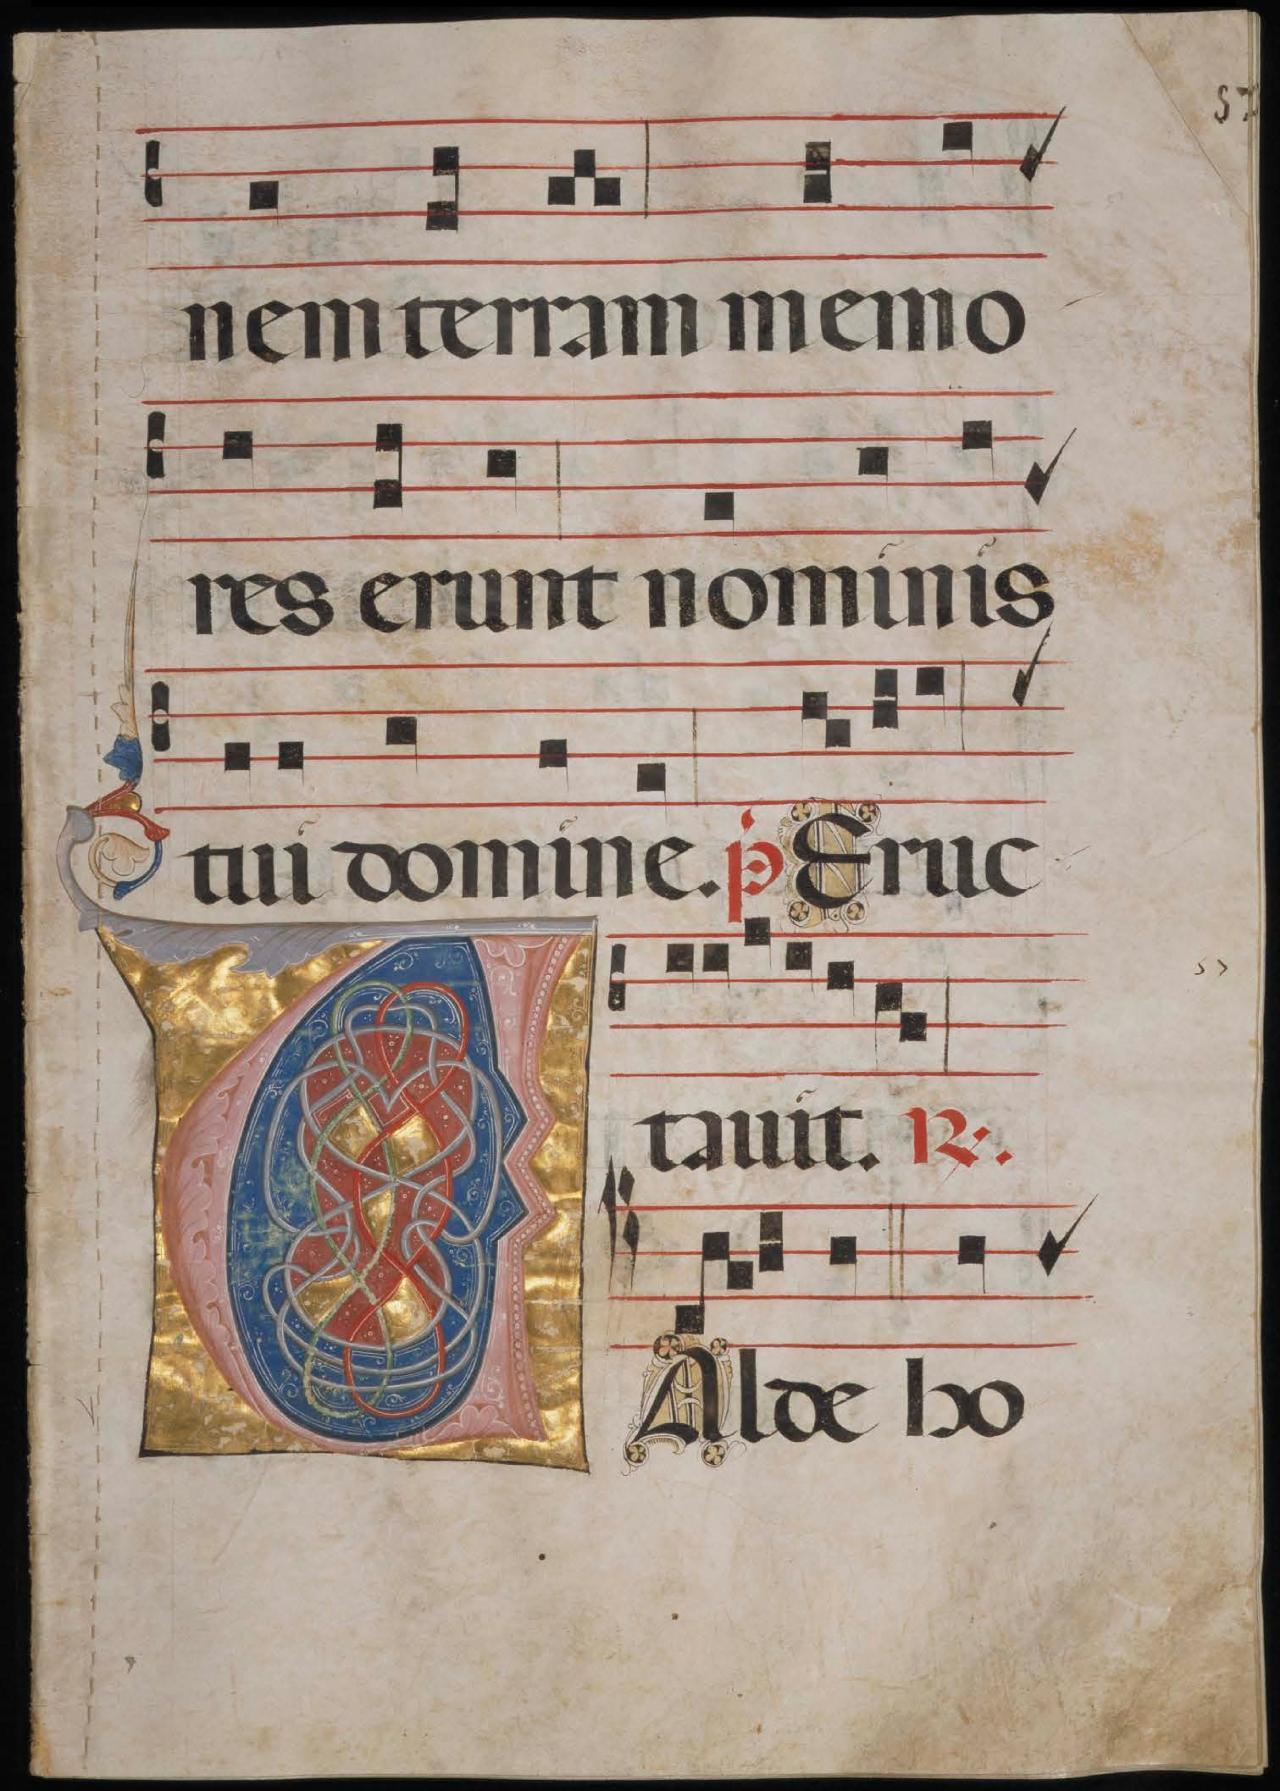 57
nem terram memo
res erunt nominis
tui domine. p̄ Eruc
57
tauit. R.
VAlde ho